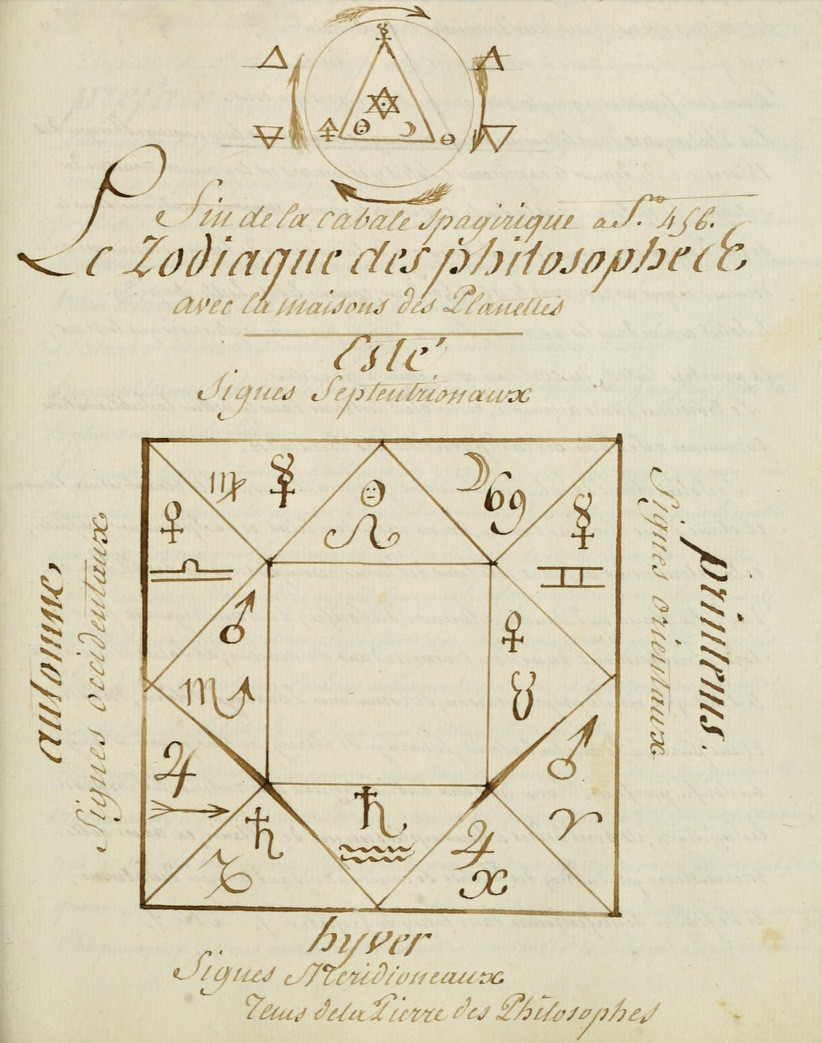 Fin de la Cabale Spagirique a f.º 456.
Le Zodiaque des philosophe &
avec la maisons des Planettes
Esté
Signes Septentrionaux
☿ ♍ ☉ ♌ ☽ ♋ ☿ ♊
♀ ♎ ♂ ♏ ♀ ♉
♃ ♐ ♄ ♑ ♄ ♒ ♃ ♓ ♂ ♈
automne
Signes occidentaux
Signes orientaux
printems.
hyver
Signes Meridioneaux
Tems de la Pierre des Philosophes